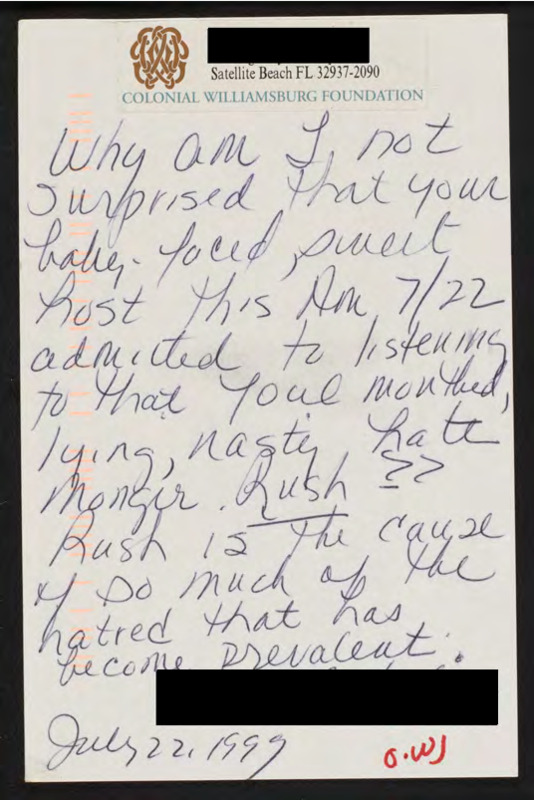 Satellite Beach FL 32937-2090
COLONIAL WILLIAMSBURG FOUNDATION
Why am I not
surprised that your
baby-faced, sweet
host this Am 7/22
admitted to listening
to that foul mouthed,
lying, nasty hate
monger. Rush ??
Rush is the cause
of so much of the
hatred that has
become prevalent.
July 22, 1999
o.w)